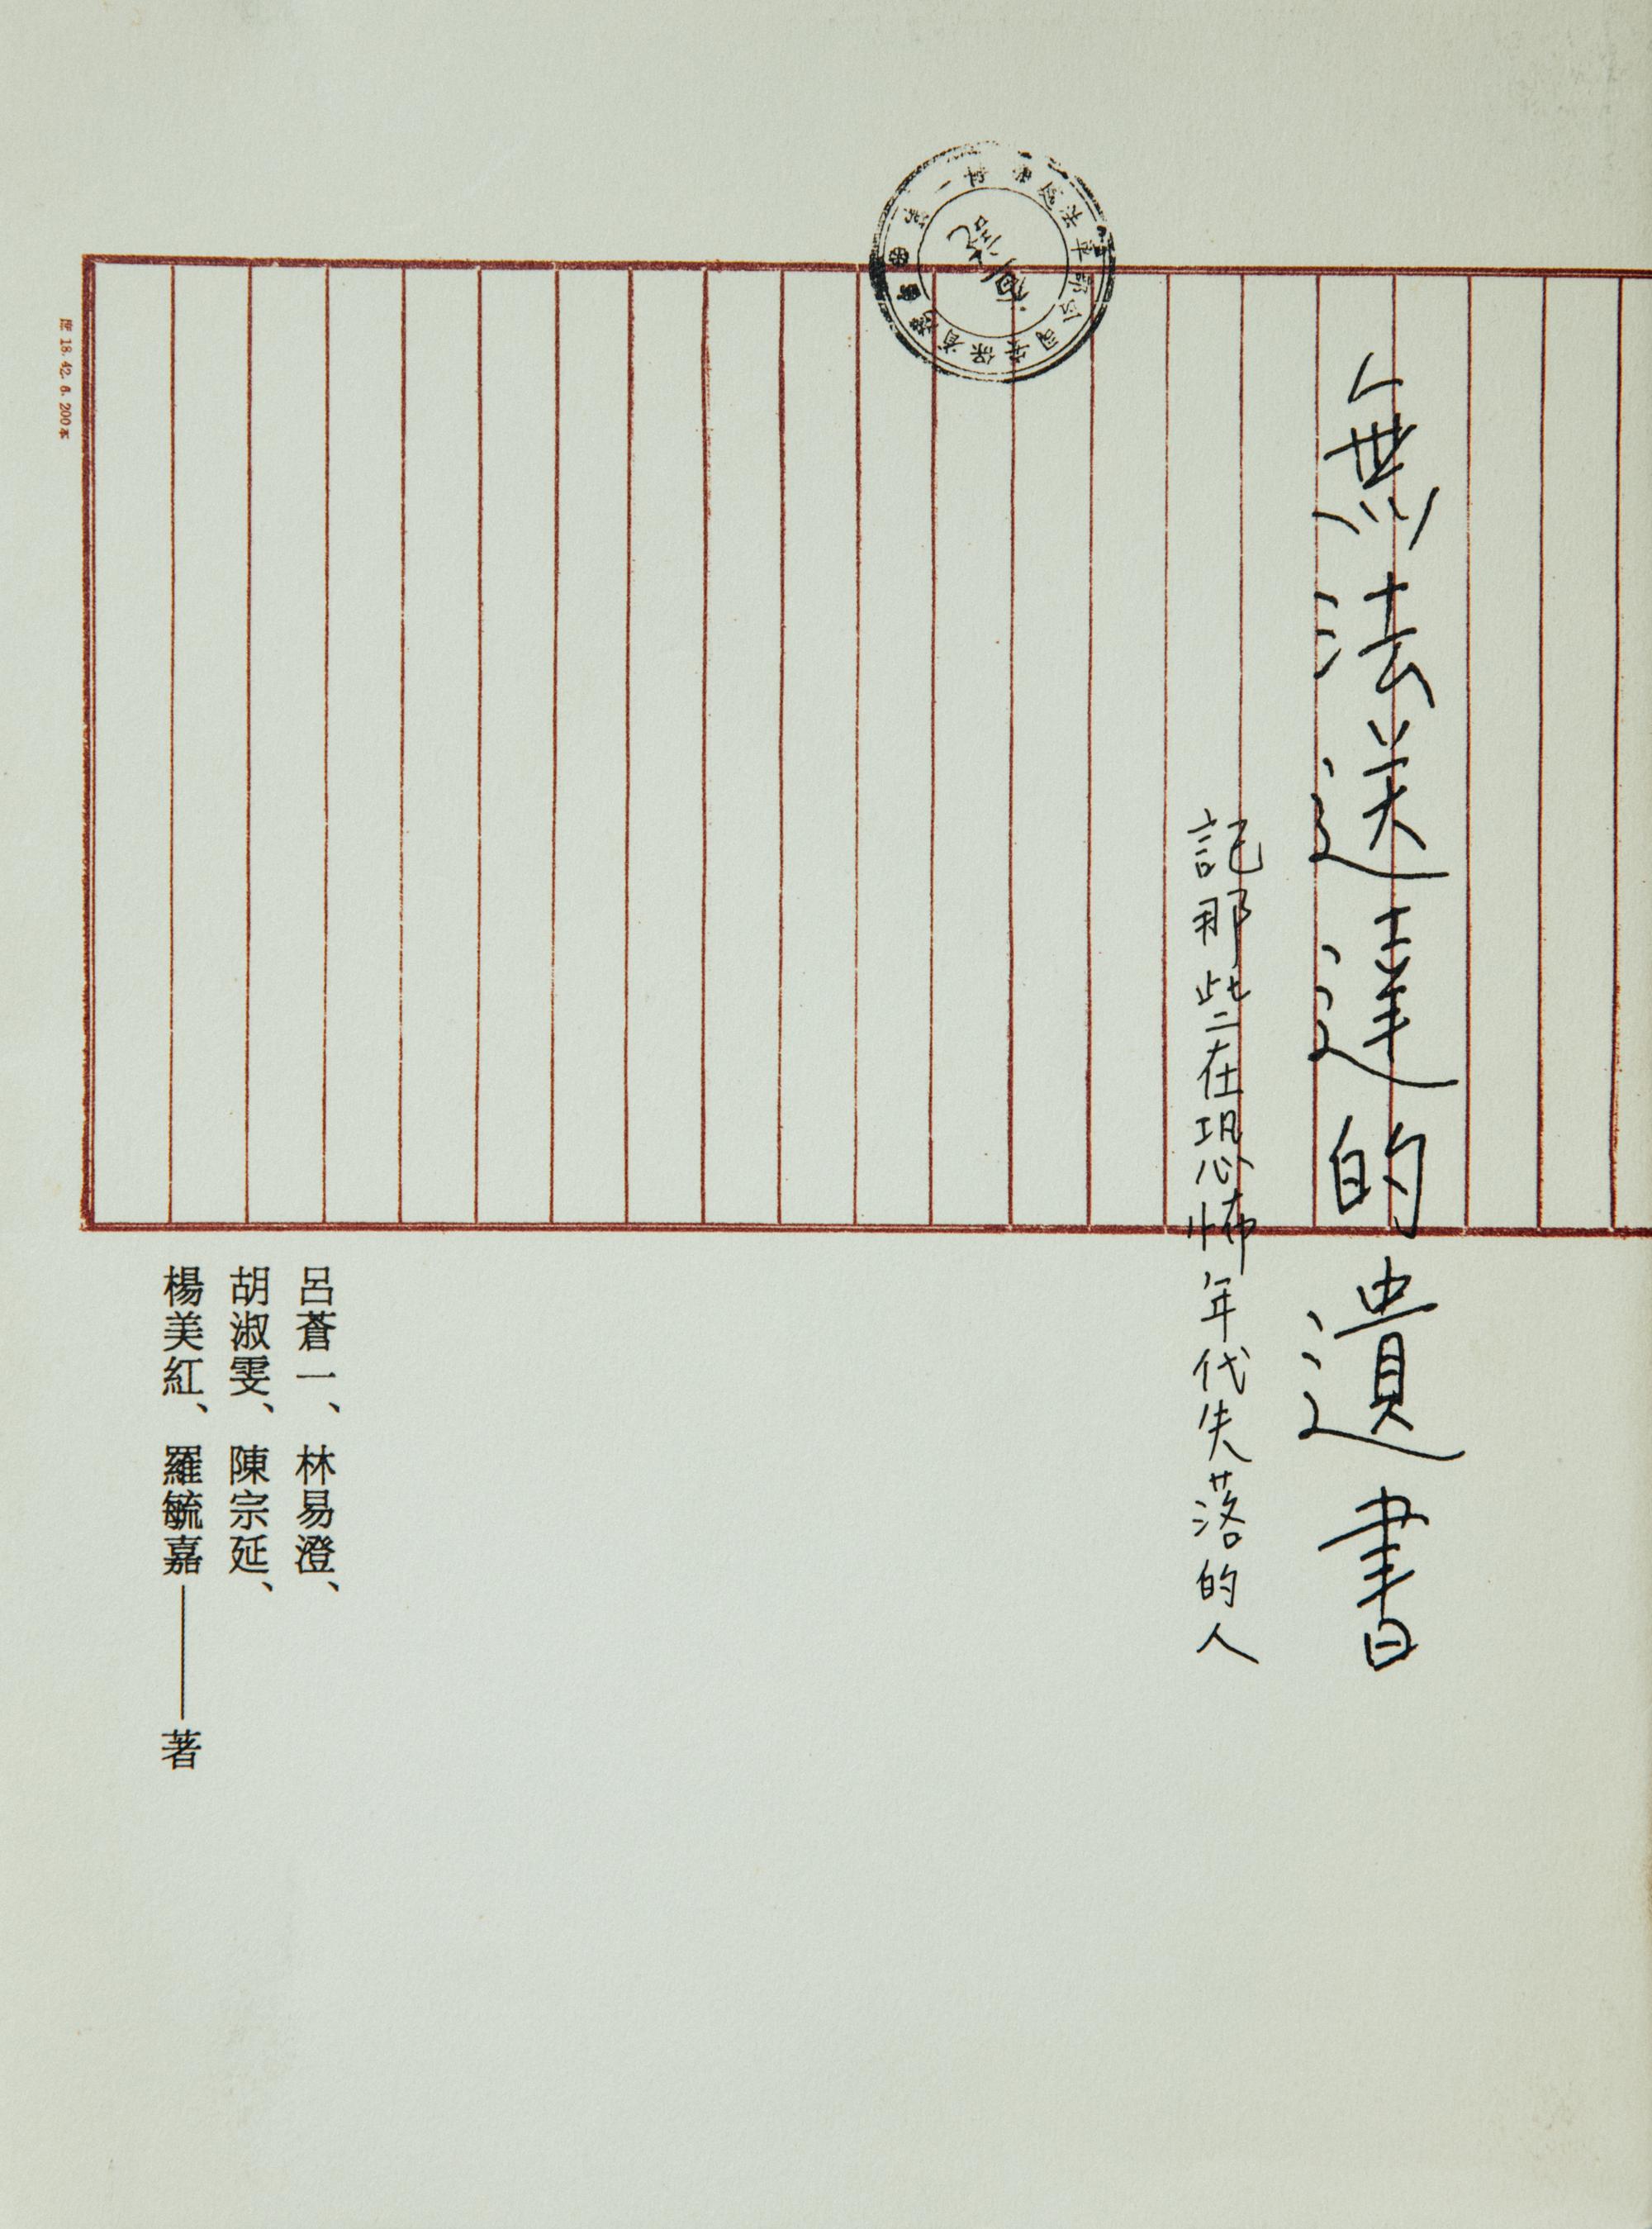 無法送達的遺書
記那些在恐怖年代失落的人
呂蒼一、林易澄、
胡淑雯、陳宗延、
楊美紅、羅毓嘉——著
18. 42. 6. 200本